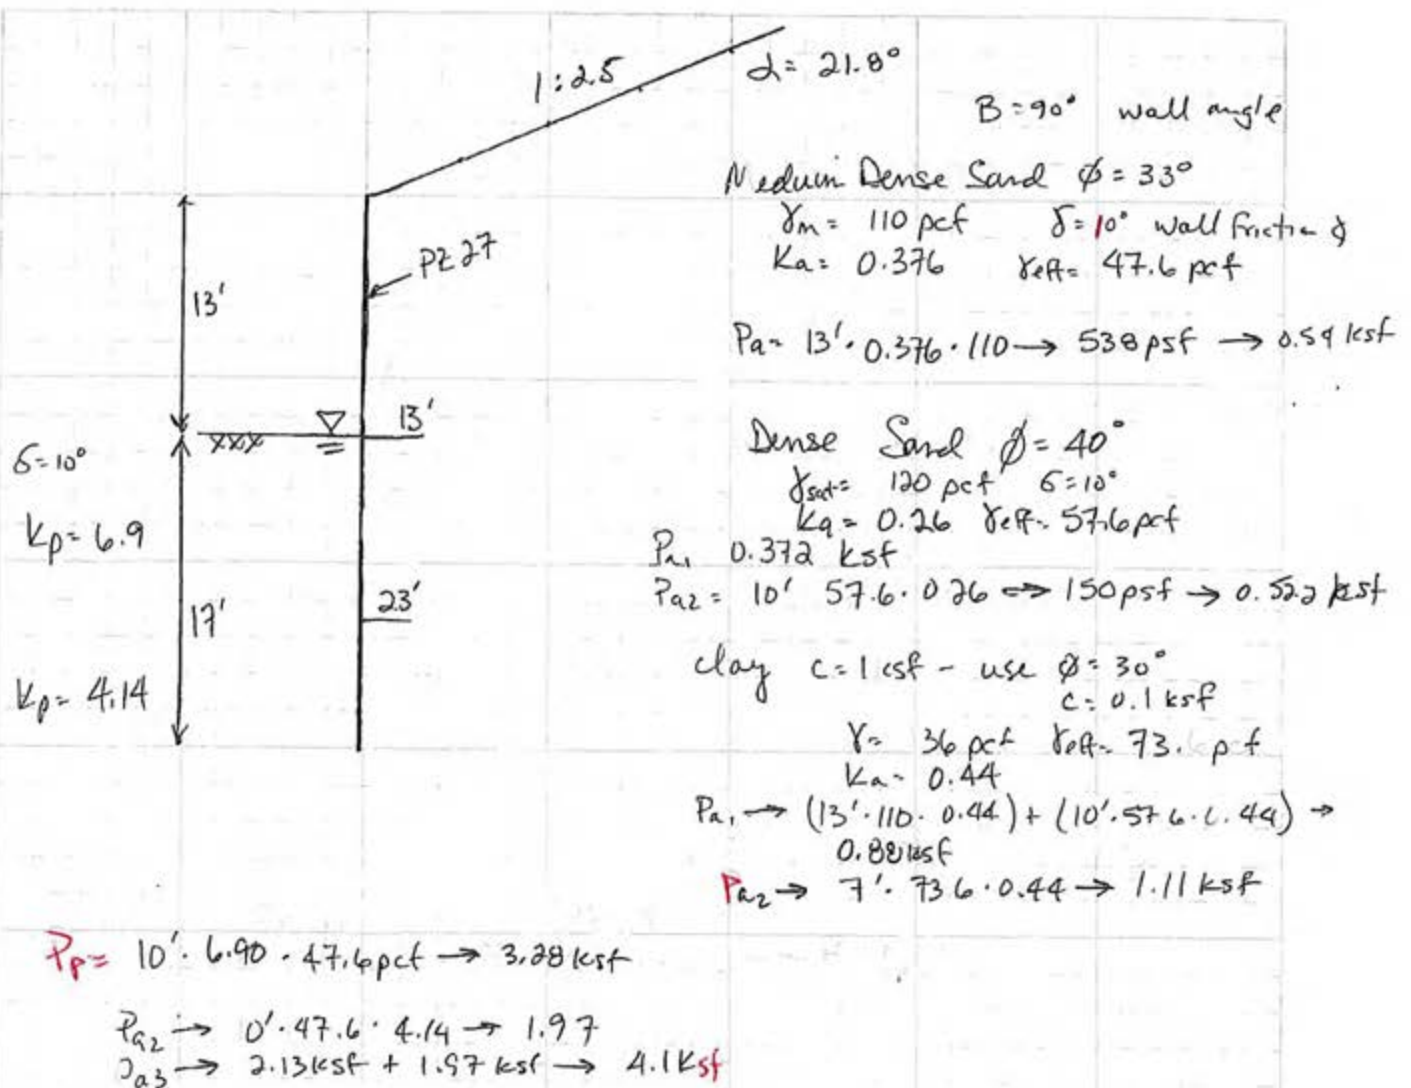 1:2.5
α= 21.8°
B=90° wall angle
Meduim Dense Sand Ø=33°
γm= 110 pcf δ=10° wall friction ∮
Ka= 0.376 γeff= 47.6 pcf
PZ 27
13'
Pa= 13'·0.376·110→ 538psf → 0.54 ksf
13'
Dense Sand Ø= 40°
γsat= 120 pcf δ=10°
Ka= 0.26 γeff- 57.6pcf
δ=10°
Kp= 6.9
Pa1 0.372 ksf
Pa2= 10' 57.6·0.26 ⇒ 150psf → 0.522 ksf
23'
17'
Clay c=1ksf - use Ø=30°
c= 0.1 ksf
Kp= 4.14
γ= 36 pcf γeff- 73. pcf
Ka- 0.44
Pa1→ (13'·110·0.44)+(10'·57 6· .44) →
0.88ksf
Pa2→ 7'·73 6·0.44→ 1.11 ksf
Pp= 10'·6.90·47.6pcf → 3.28 ksf
Pa2→ 0'·47.6·4.14→ 1.97
a3→ 2.13ksf + 1.97 ksf→ 4.1Ksf